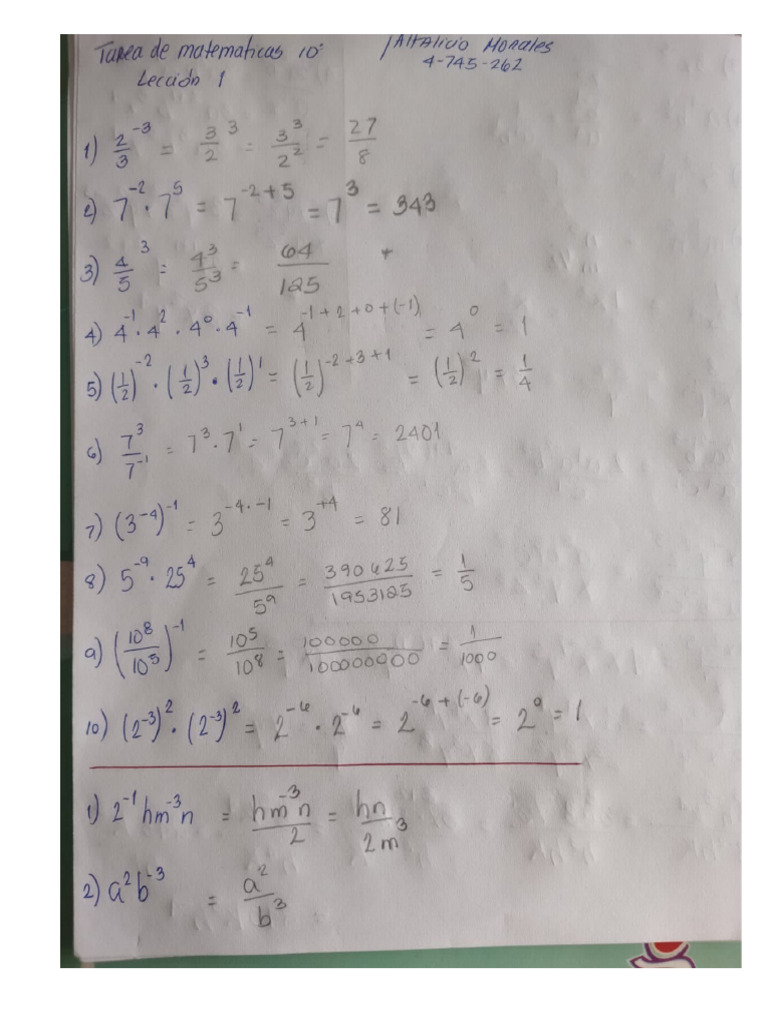 Tarea de matematicas 10°
Lección 1
Morales
4-745-262
1) 2/3 ^-3 = 3/2 ^3 = 3^3/2^2 = 27/8
2) 7^-2 · 7^5 = 7^-2+5 = 7^3 = 343
3) 4/5 ^3 = 4^3/5^3 = 64/125
4) 4^-1 · 4^2 · 4^0 · 4^-1 = 4^-1+2+0+(-1) = 4^0 = 1
5) (1/2)^-2 · (1/2)^3 · (1/2)^1 = (1/2)^-2+3+1 = (1/2)^2 = 1/4
6) 7^3/7^-1 = 7^3 · 7^1 = 7^3+1 = 7^4 = 2401
7) (3^-4)^-1 = 3^-4·-1 = 3^+4 = 81
8) 5^-9 · 25^4 = 25^4/5^9 = 390625/1953125 = 1/5
9) (10^8/10^5)^-1 = 10^5/10^8 = 100000/100000000 = 1/1000
10) (2^-3)^2 · (2^-3)^2 = 2^-6 · 2^-6 = 2^-6+(-6) = 2^0 = 1
1) 2^-1 hm^-3 n = hm^-3 n/2 = hn/2m^3
2) a^2 b^-3 = a^2/b^3